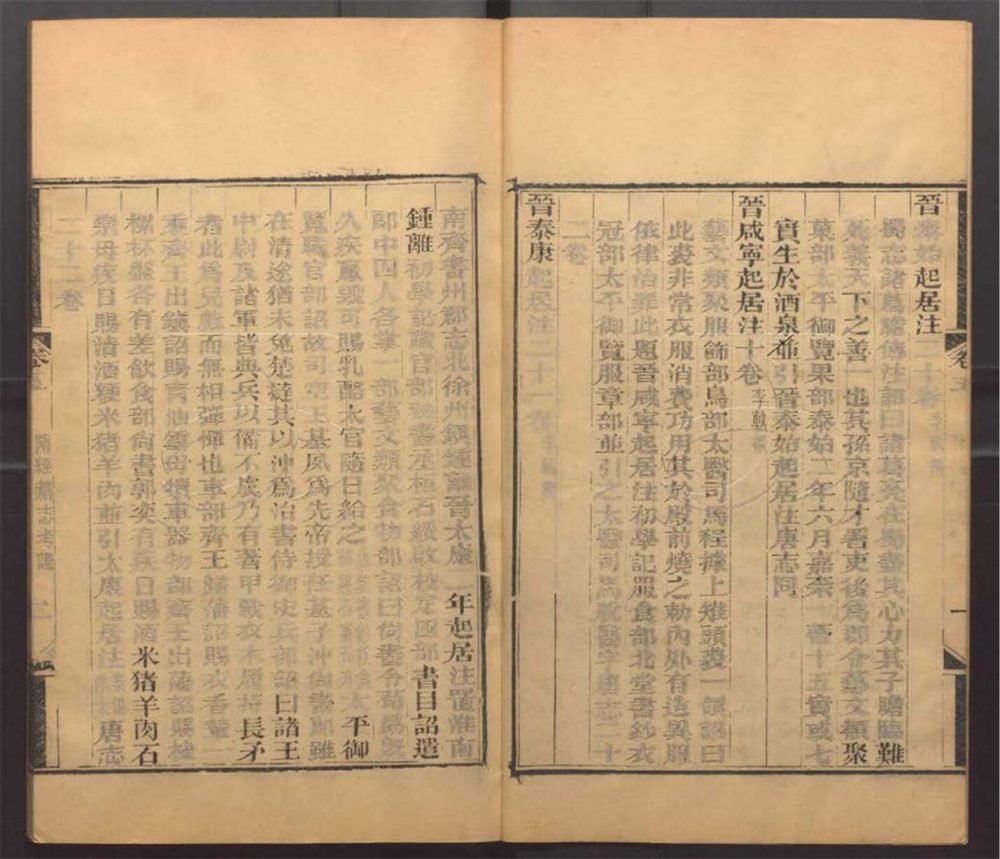 晉泰始起居注二十卷李軌撰
蜀志諸葛瞻傳注詔曰諸葛亮在蜀盡其心力其子瞻臨難
死義天下之善一也其孫京隨才署吏後爲郿令藝文類聚
菓部太平御覽果部泰始二年六月嘉柰一蔕十五實或七
實生於酒泉並引晉泰始起居注唐志同
晉咸寧起居注十卷李軌撰
藝文類聚服飾部鳥部太醫司馬程據上雉頭裘一領詔曰
此裘非常衣服消費功用其於殿前燒之勅內外有造異服
依律治罪此題晉咸寧起居注初學記服食部北堂書鈔衣
冠部太平御覽服章部並引之太醫司馬或醫字唐志二十
二卷
晉泰康起居注二十一卷李軌撰
卷五
南齊書州郡志北徐州鎮鍾離晉太康二年起居注置淮南
鍾離初學記職官部祕書丞桓石綏啟校定四部書目詔遣
郎中四人各掌一部藝文類聚食物部詔曰尚書令荀勗旣
久疾羸毀可賜乳酪太官隨日給之太平御
覽職官部詔故司空王基夙爲先帝授任基子沖尚書郎雖
在清途猶未免楚撻其以沖爲治書侍御史兵部詔曰諸王
中尉及諸軍皆典兵以備不虞乃有著甲戰衣木屐持長矛
者此爲兒戲而無相彈憚也車部齊王歸藩詔賜衣香輦一
乘齊王出鎮詔賜青油雲母犢車器物部齊王出藩詔賜榼
樏杯盤各有差飲食部尚書郭奕有疾日賜酒米豬羊肉石
崇母疾日賜清酒粳米豬羊肉並引太康起居注唐志
二十二卷
卷五
隋經籍志考證
二